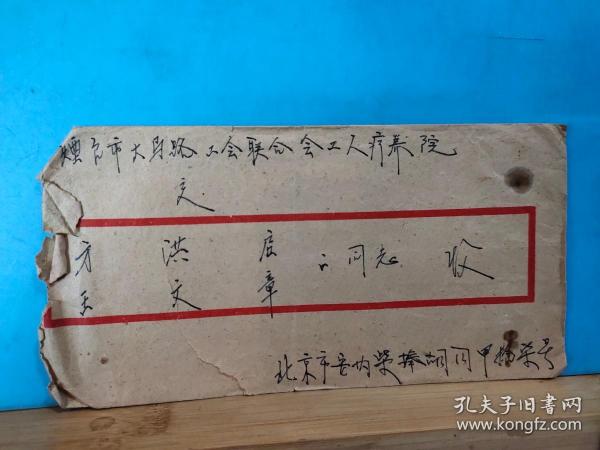 烟台市大马路工会联合会工人疗养院
交
方 洪 启
王 文 章 二同志 收
北京市安内
胡同甲 号
孔夫子旧书网
www.kongfz.com